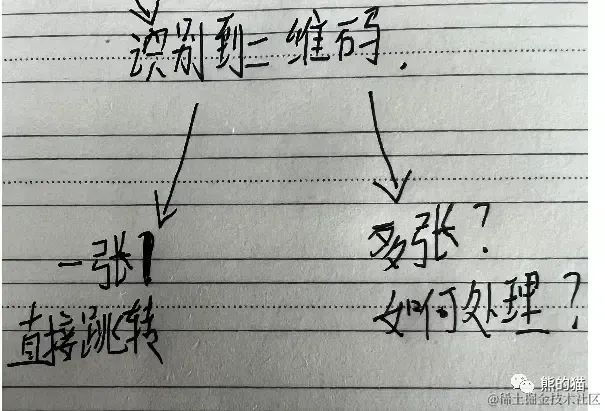 识别到二维码.
一张
直接跳转
多张?
如何处理?
熊的猫
@稀土掘金技术社区